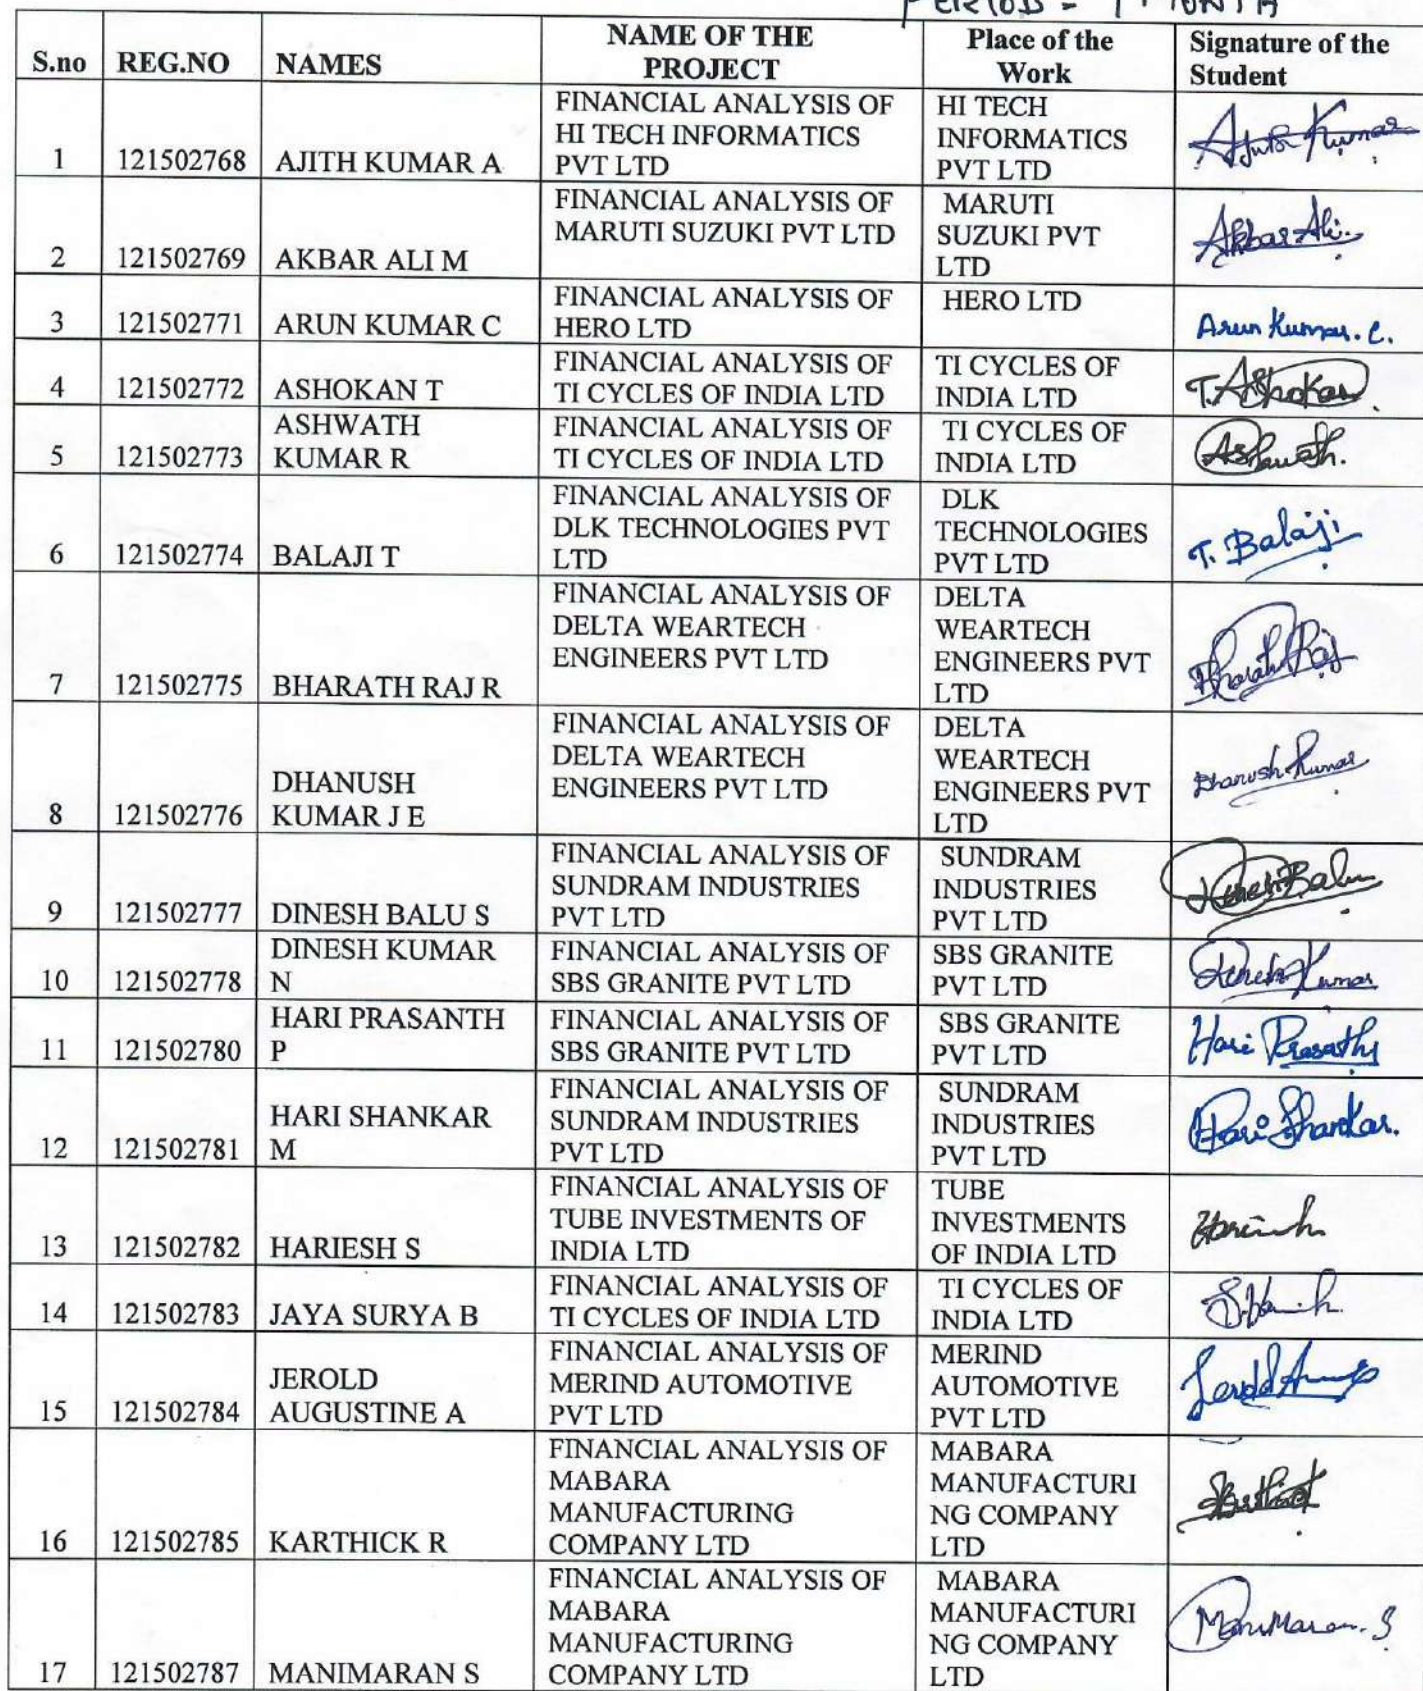 PERIOD - 1 MONTH
S.no REG.NO NAMES NAME OF THE PROJECT Place of the Work Signature of the Student
1 121502768 AJITH KUMAR A FINANCIAL ANALYSIS OF HI TECH INFORMATICS PVT LTD HI TECH INFORMATICS PVT LTD Ajith Kumar
2 121502769 AKBAR ALI M FINANCIAL ANALYSIS OF MARUTI SUZUKI PVT LTD MARUTI SUZUKI PVT LTD Akbar Ali.
3 121502771 ARUN KUMAR C FINANCIAL ANALYSIS OF HERO LTD HERO LTD Arun Kumar. C.
4 121502772 ASHOKAN T FINANCIAL ANALYSIS OF TI CYCLES OF INDIA LTD TI CYCLES OF INDIA LTD T. Ashokan
5 121502773 ASHWATH KUMAR R FINANCIAL ANALYSIS OF TI CYCLES OF INDIA LTD TI CYCLES OF INDIA LTD Ashwath.
6 121502774 BALAJI T FINANCIAL ANALYSIS OF DLK TECHNOLOGIES PVT LTD DLK TECHNOLOGIES PVT LTD T. Balaji
7 121502775 BHARATH RAJ R FINANCIAL ANALYSIS OF DELTA WEARTECH ENGINEERS PVT LTD DELTA WEARTECH ENGINEERS PVT LTD Bharath Raj
8 121502776 DHANUSH KUMAR J E FINANCIAL ANALYSIS OF DELTA WEARTECH ENGINEERS PVT LTD DELTA WEARTECH ENGINEERS PVT LTD Dhanush Kumar
9 121502777 DINESH BALU S FINANCIAL ANALYSIS OF SUNDRAM INDUSTRIES PVT LTD SUNDRAM INDUSTRIES PVT LTD Dinesh Balu
10 121502778 DINESH KUMAR N FINANCIAL ANALYSIS OF SBS GRANITE PVT LTD SBS GRANITE PVT LTD Dinesh Kumar
11 121502780 HARI PRASANTH P FINANCIAL ANALYSIS OF SBS GRANITE PVT LTD SBS GRANITE PVT LTD Hari Prasanth
12 121502781 HARI SHANKAR M FINANCIAL ANALYSIS OF SUNDRAM INDUSTRIES PVT LTD SUNDRAM INDUSTRIES PVT LTD Hari Shankar.
13 121502782 HARIESH S FINANCIAL ANALYSIS OF TUBE INVESTMENTS OF INDIA LTD TUBE INVESTMENTS OF INDIA LTD
14 121502783 JAYA SURYA B FINANCIAL ANALYSIS OF TI CYCLES OF INDIA LTD TI CYCLES OF INDIA LTD
15 121502784 JEROLD AUGUSTINE A FINANCIAL ANALYSIS OF MERIND AUTOMOTIVE PVT LTD MERIND AUTOMOTIVE PVT LTD
16 121502785 KARTHICK R FINANCIAL ANALYSIS OF MABARA MANUFACTURING COMPANY LTD MABARA MANUFACTURI NG COMPANY LTD
17 121502787 MANIMARAN S FINANCIAL ANALYSIS OF MABARA MANUFACTURING COMPANY LTD MABARA MANUFACTURI NG COMPANY LTD Manimaran. S